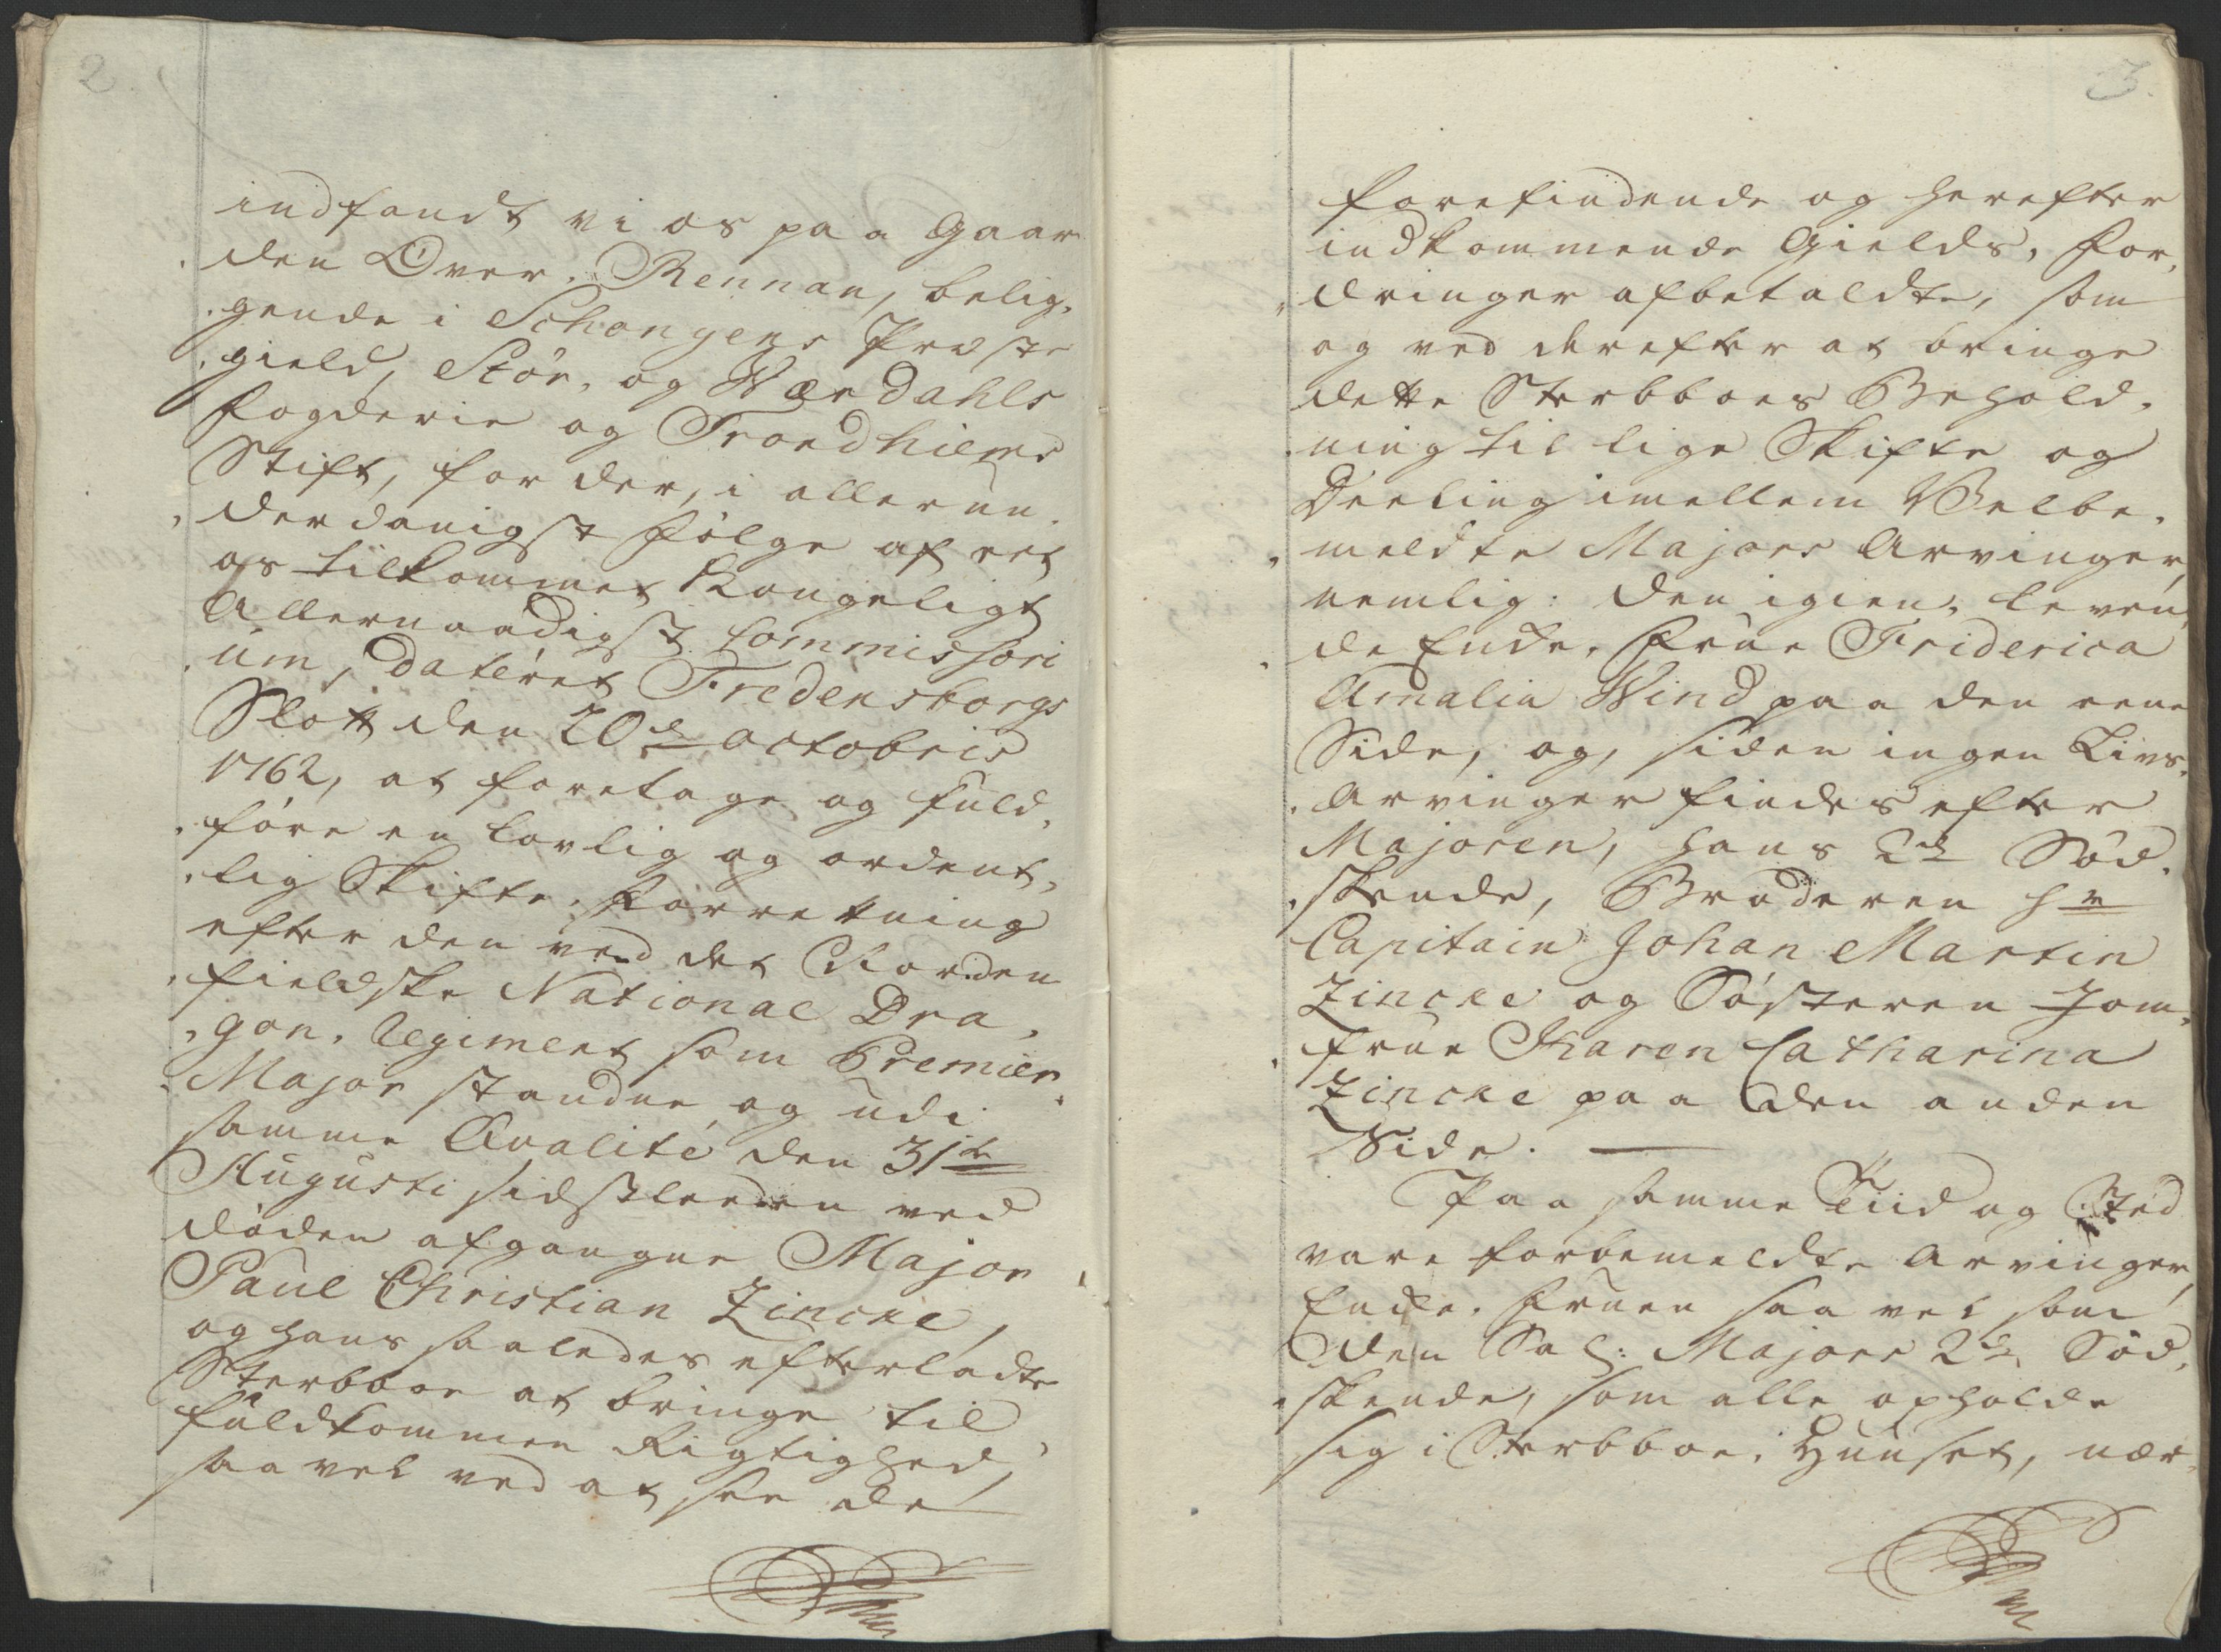 2.
indfandt vi os paa Gaar
den Over. Rennan, belig,
gende i Schongens Præste
gield, Stör, og Wærdahls
Fogderie og Trondhiems
Stift, for der, i allerun,
derdanigst Fölge af det
os tilkommet Kongeligt
Allernaadigst Commissori
um, dateret Fredensborgs
Slott den 20de Octobris
1762, at foretage og fuld,
före en lovlig og ordent,
lig Skifte, Forretning
efter den ved det Norden
fieldske National Dra,
gon, Regiment som Premier
Major standne og udi
samme Qvalité den 31te
Augusti sidstleeden ved
döden afgangne Major
Paul Christian Zincke,
og hans saaledes efterladte
Sterbboe at bringe til
fuldkommen Rigtighed,
saa vel ved at see de
3.
forefindende og herefter
indkommende Gields, For,
dringer afbetaldte, som
og ved derefter at bringe
dette Sterbboes Behold,
ning til lige Skifte og
Deeling imellem Velbe,
meldte Majors Arvinger,
nemlig: den igien, leven,
de Enke, Frue Friderica
Amalia Wind paa den eene
Side, og, siden ingen Livs,
Arvinger findes efter
Majoren, hans 2de Söd,
skende, Broderen Hr
Capitain Johan Martin
Zincke og Sösteren Jom,
frue Karen Catharina
Zincke paa den anden
Side.
Paa samme Tiid og Sted
vare forbemeldte Arvinger,
Enke, Fruen saa vel som
den Sal: Majors 2de Söd,
skende, som alle opholde
sig i Sterbboe, Huuset, nær,